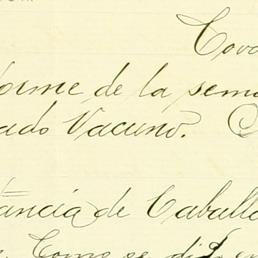 Cova
forme de la sema
ado Vacuno.
tancia de Caballo
Como se dió en